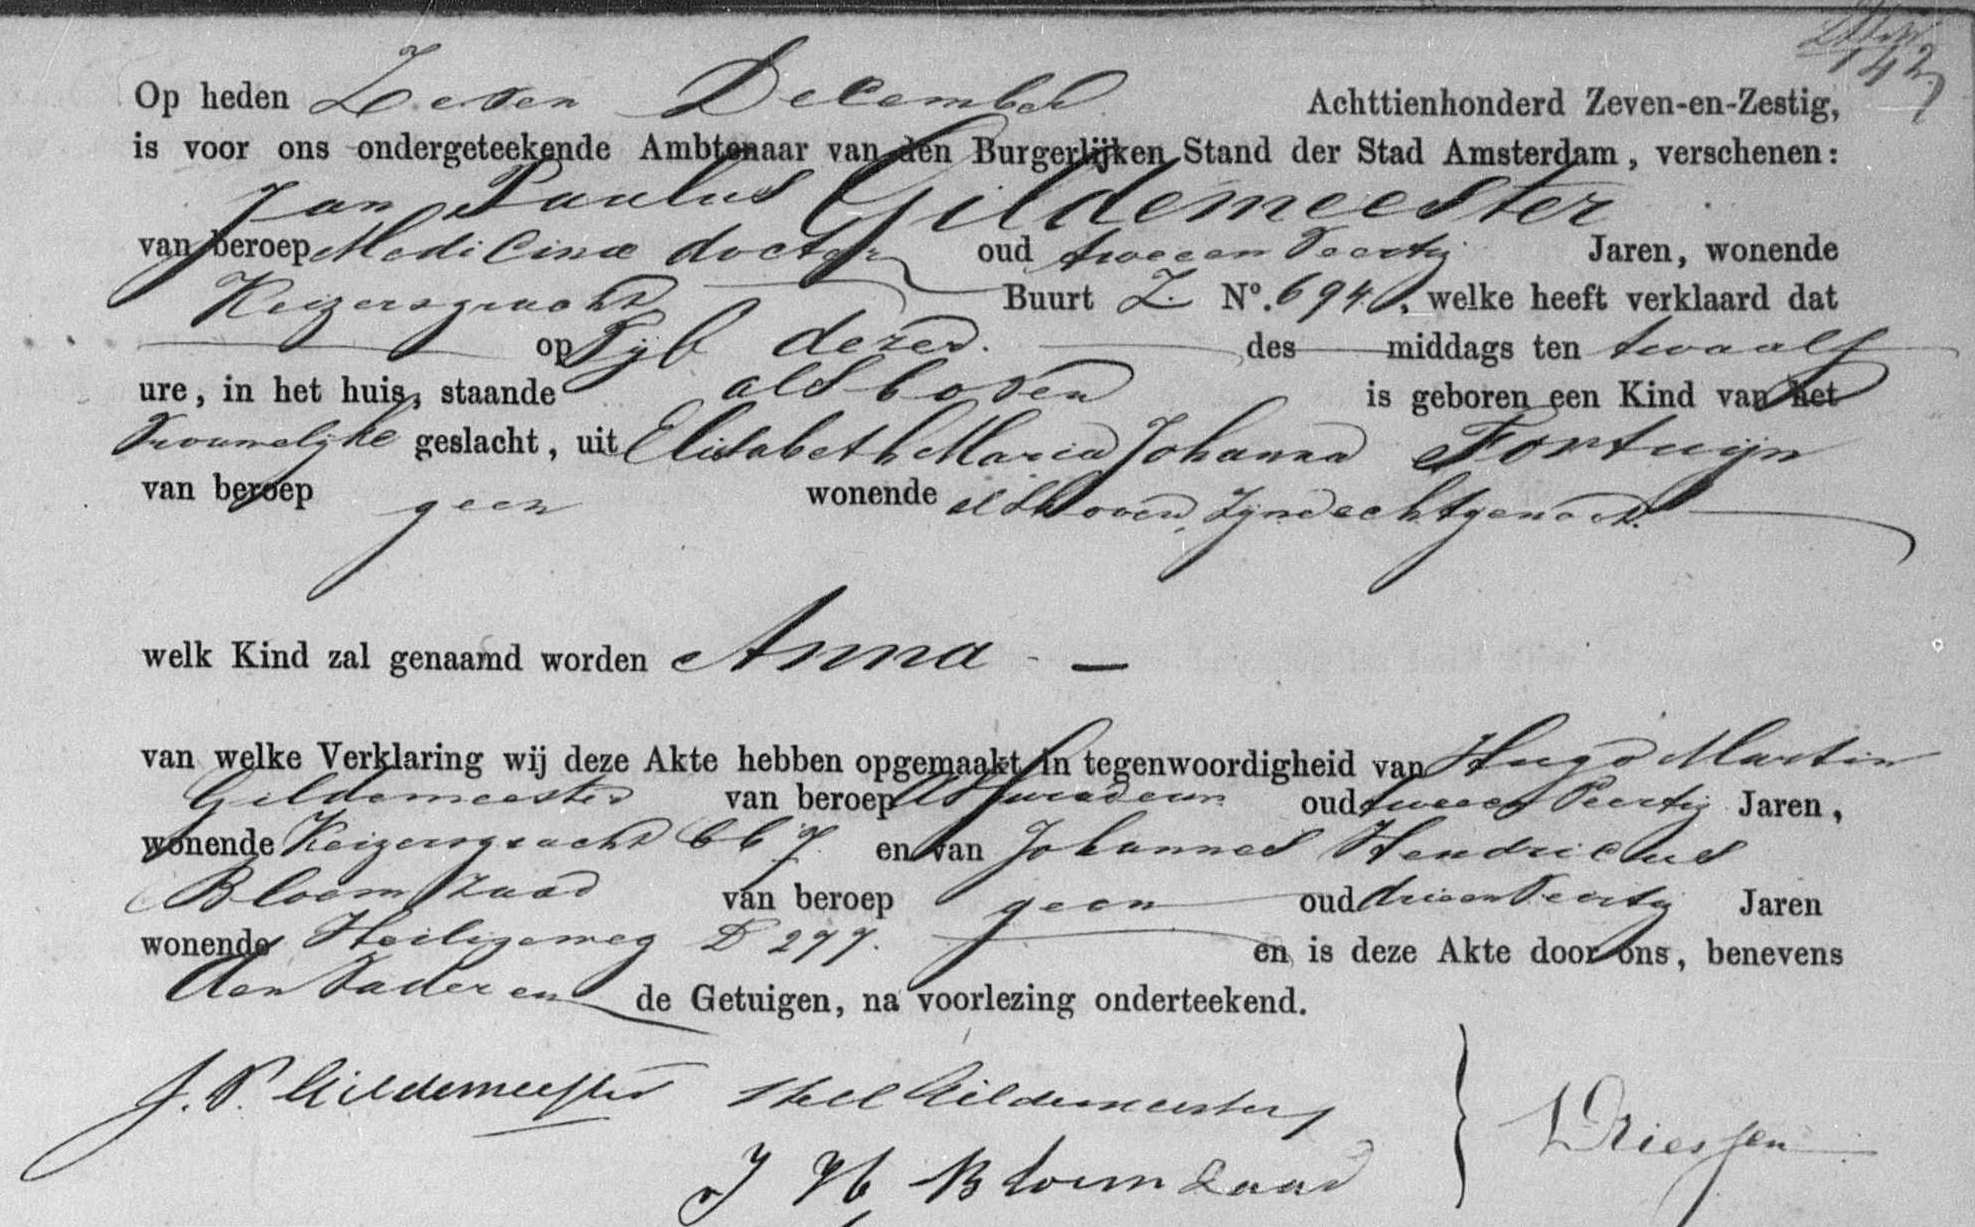 142
Op heden Zeven December Achttienhonderd Zeven-en-Zestig,
is voor ons ondergeteekende Ambtenaar van den Burgerlijken Stand der Stad Amsterdam, verschenen:
Jan Paulus Gildemeester
van beroep Medicinæ doctor oud twee en veertig Jaren, wonende
Keizersgracht Buurt Z. No. 694, welke heeft verklaard dat
op Vijf dezer. des middags ten twaalf
ure, in het huis, staande als boven is geboren een Kind van het
vrouwelijke geslacht, uit Elisabeth Maria Johanna Fortuijn
van beroep geen wonende als boven, zijne echtgenoot.
welk Kind zal genaamd worden Anna —
van welke Verklaring wij deze Akte hebben opgemaakt in tegenwoordigheid van Hugo Martin
Gildemeester van beroep Assuradeur oud twee en veertig Jaren,
wonende Keizersgracht en van Johannes Hendricus
Bloemzaad van beroep geen oud drie en veertig Jaren
wonende Heiligeweg D 277. en is deze Akte door ons, benevens
den vader en de Getuigen, na voorlezing onderteekend.
J. P. Gildemeester Gildemeester
J H Bloemzaad Driessen